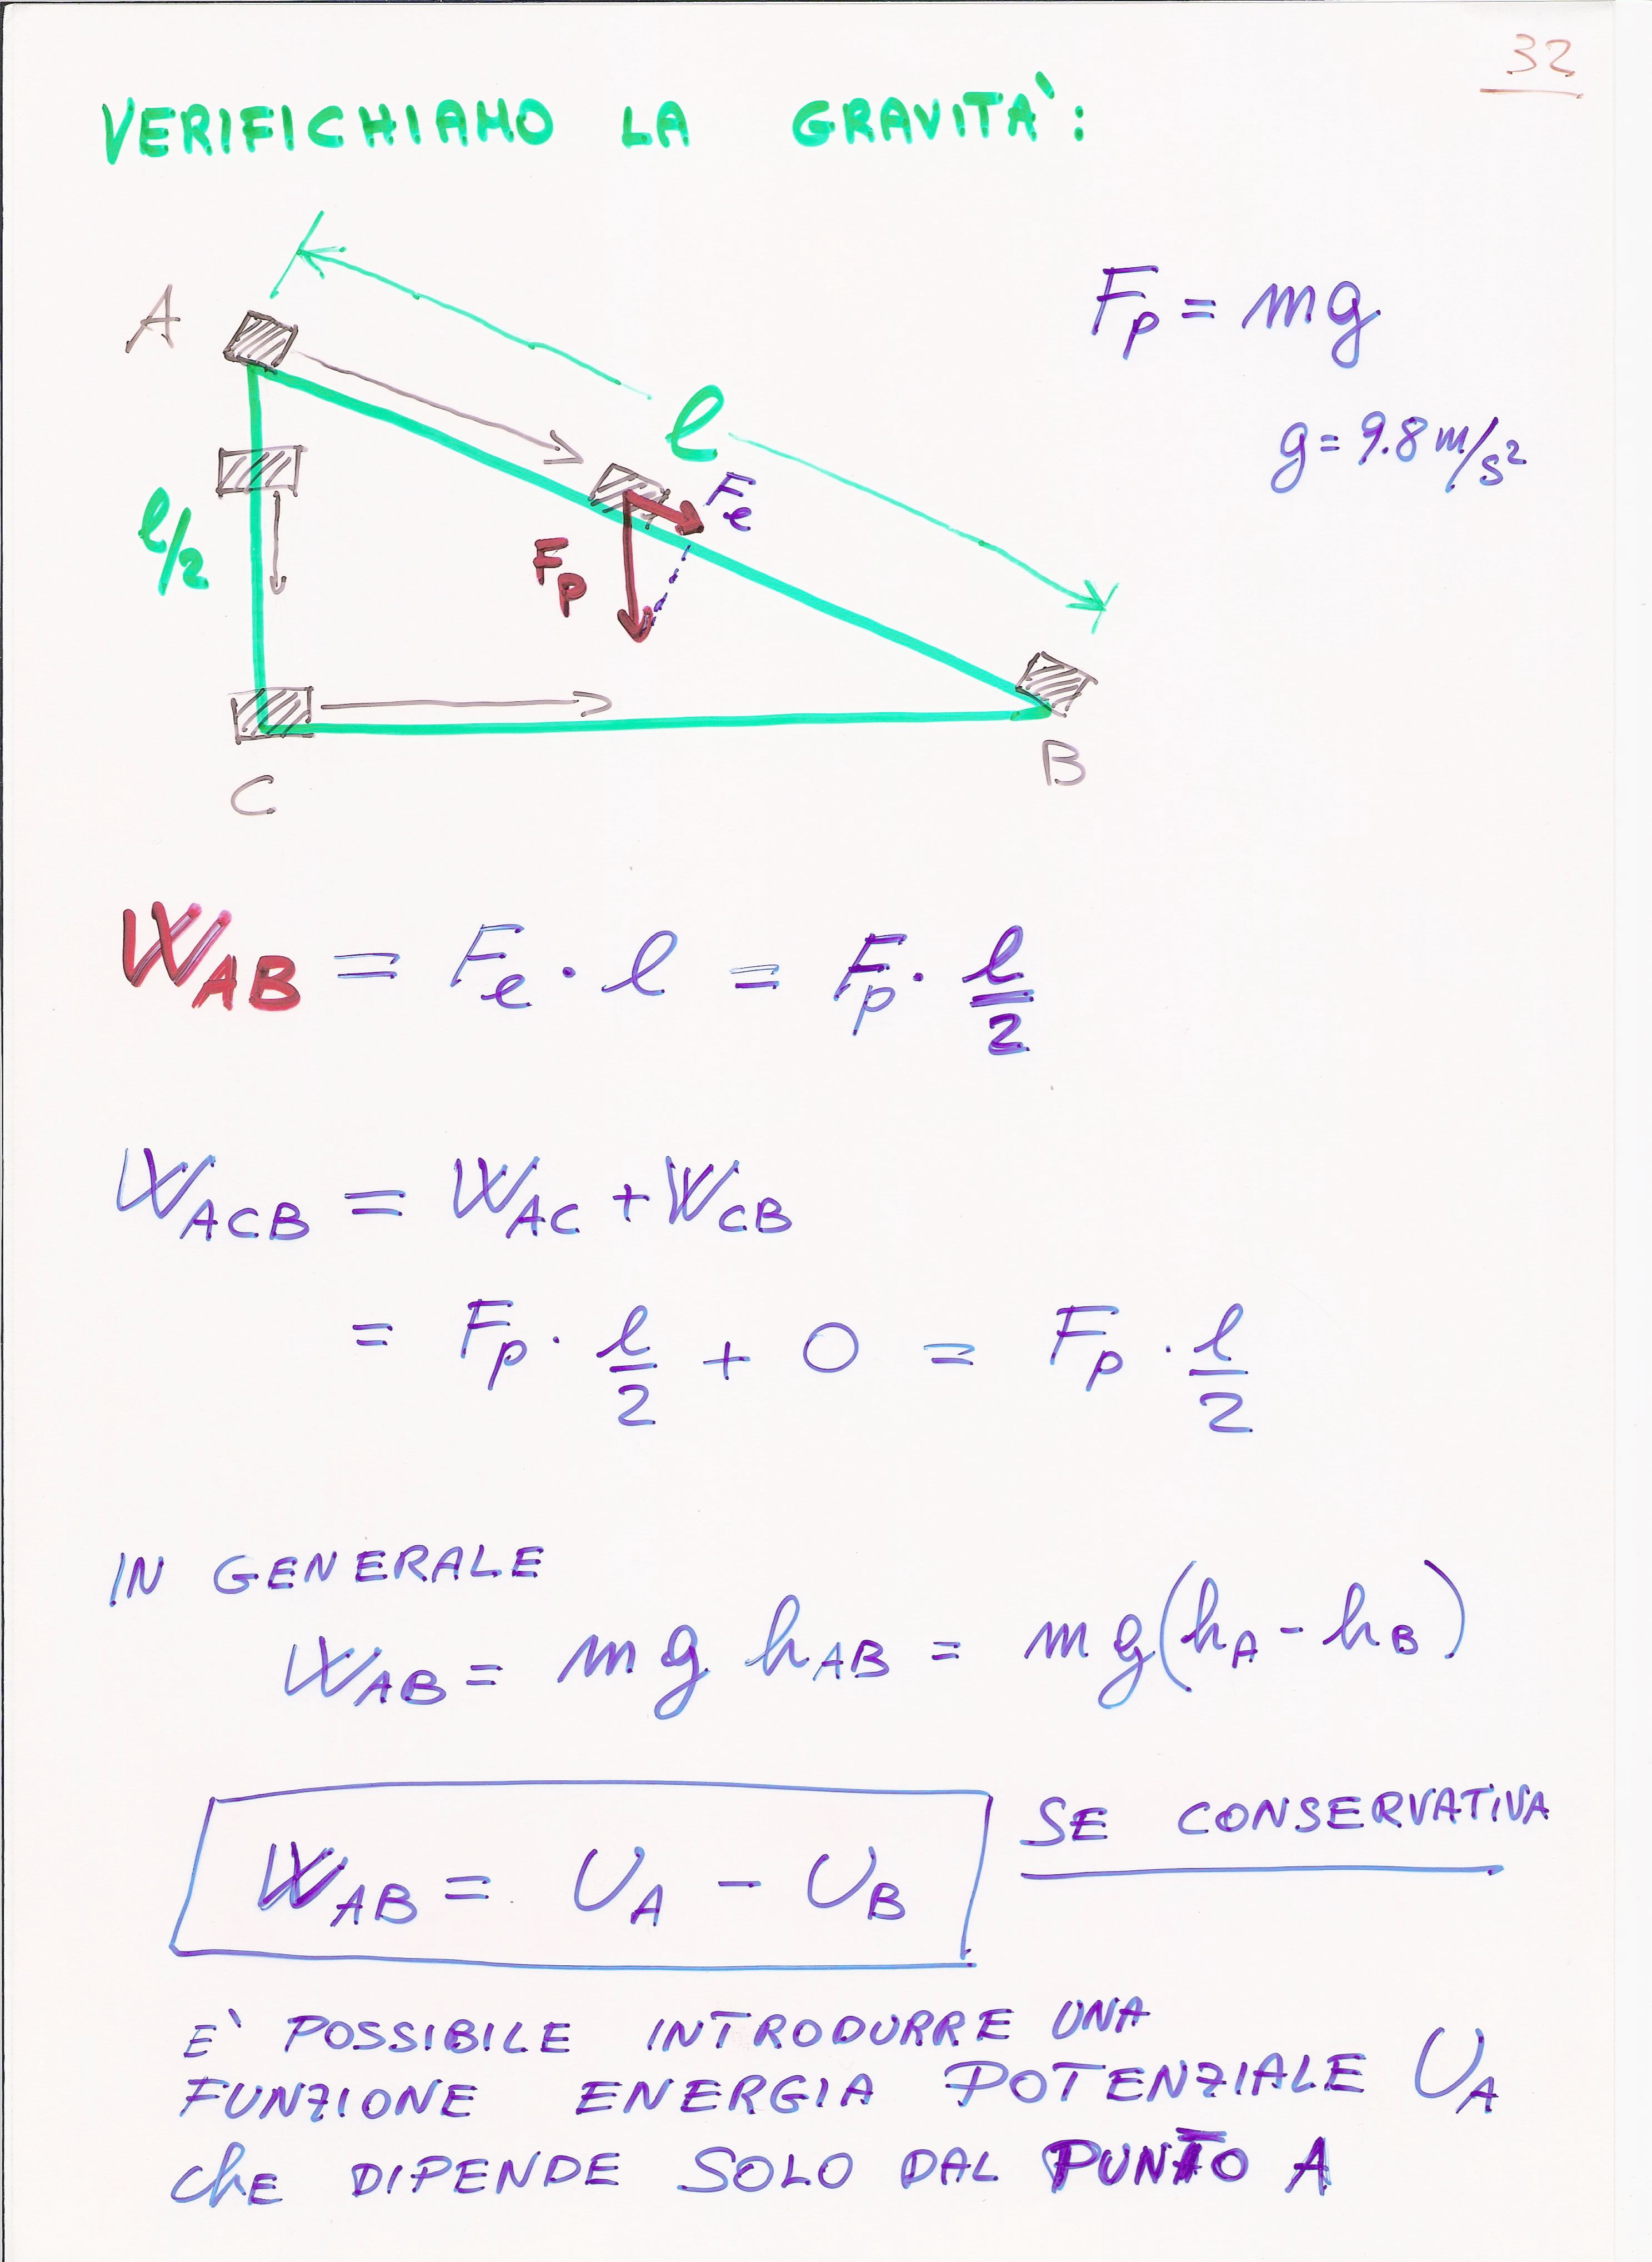 32
VERIFICHIAMO LA GRAVITA':
A
l
l/2
F_e
F_p
C
B
F_p = mg
g = 9.8 m/s²
W_AB = F_e · l = F_p · l/2
W_ACB = W_AC + W_CB
= F_p · l/2 + 0 = F_p · l/2
IN GENERALE
W_AB = mg h_AB = mg(h_A - h_B)
W_AB = U_A - U_B
SE CONSERVATIVA
E' POSSIBILE INTRODURRE UNA
FUNZIONE ENERGIA POTENZIALE U_A
chE DIPENDE SOLO DAL PUNTO A